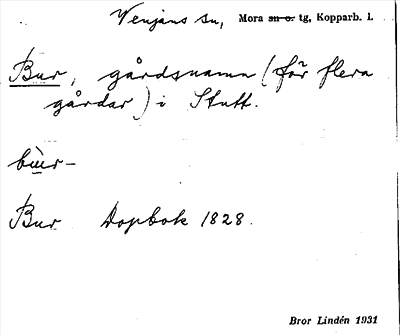 Venjans sn, Mora sn o. tg, Kopparb. l.
Bur, gårdsnamn (för flera
gårdar) i Stutt.
bùr-
Bur Dopbok 1828.
Bror Lindén 1931